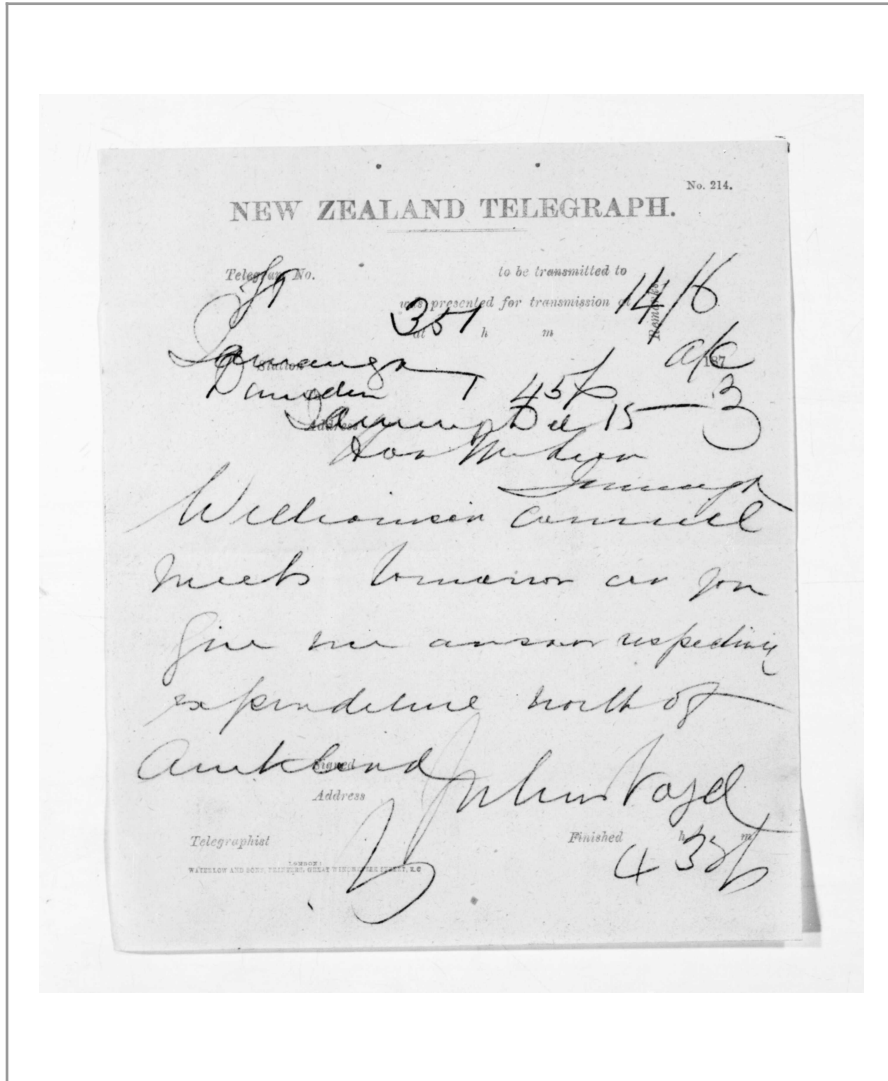 No. 214.
NEW ZEALAND TELEGRAPH.
Telegram No. to be transmitted to
was presented for transmission at 14/6
at 351 h m Remarks
Station a/c 187
Dunedin
Address Dec 15 3
Hon McLean
Williamson Council
meets tomorrow can you
give me answer respecting
expenditure north of
Auckland
Signed Julius Vogel
Address
Telegraphist Finished h m
LONDON:
WATERLOW AND SONS, PRINTERS, GREAT WINCHESTER STREET, E.C